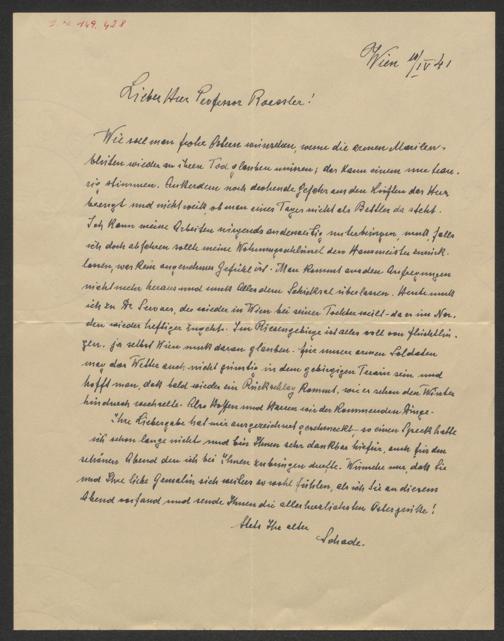 I. N. 149.428
Wien 10/IV 41
Lieber Herr Professor Roessler!
Wie soll man frohe Ostern wünschen, wenn die armen Marillen-
blüten wieder an ihren Tod glauben müssen; das kann einem nur trau-
rig stimmen. Außerdem noch drohende Gefahr aus den Lüften das Herz
beengt und nicht weiß, ob man eines Tages nicht als Bettler da steht.
Ich kann meine Arbeiten nirgends anderweitig unterbringen, muß, falls
ich doch abfahren sollte meine Wohnungsschlüssel dem Hausmeister zurück-
lassen, was kein angenehmes Gefühl ist. Man kommt aus den Aufregungen
nicht mehr heraus und muß alles dem Schicksal überlassen. Heute muß
ich zu Dr. Servaes, der wieder in Wien bei seiner Tochter weilt - da er im Nor-
den wieder heftiger zugeht. Im Riesengebirge ist alles voll von Flüchtlin-
gen. ja selbst Wien muß daran glauben. Für unsere armen Soldaten
mag das Wetter auch nicht günstig in dem gebirgigen Terrain sein und
hofft man, daß bald wieder ein Rückschlag kommt, wie er schon den Winter
hindurch wechselte. Also Hoffen und Harren wir der kommenden Dinge.
Ihre Liebesgabe hat mir ausgezeichnet geschmeckt, so einen Speck hatte
ich schon lange nicht und bin Ihnen sehr dankbar hiefür, auch für den
schönen Abend den ich bei Ihnen zubringen durfte. Wünsche nur, daß Sie
und Ihre liebe Gemalin sich weiter so wohl fühlen, als ich Sie an diesem
Abend vorfand und sende Ihnen die allerherzlichsten Ostergrüße!
Stets Ihr alter
Schade.